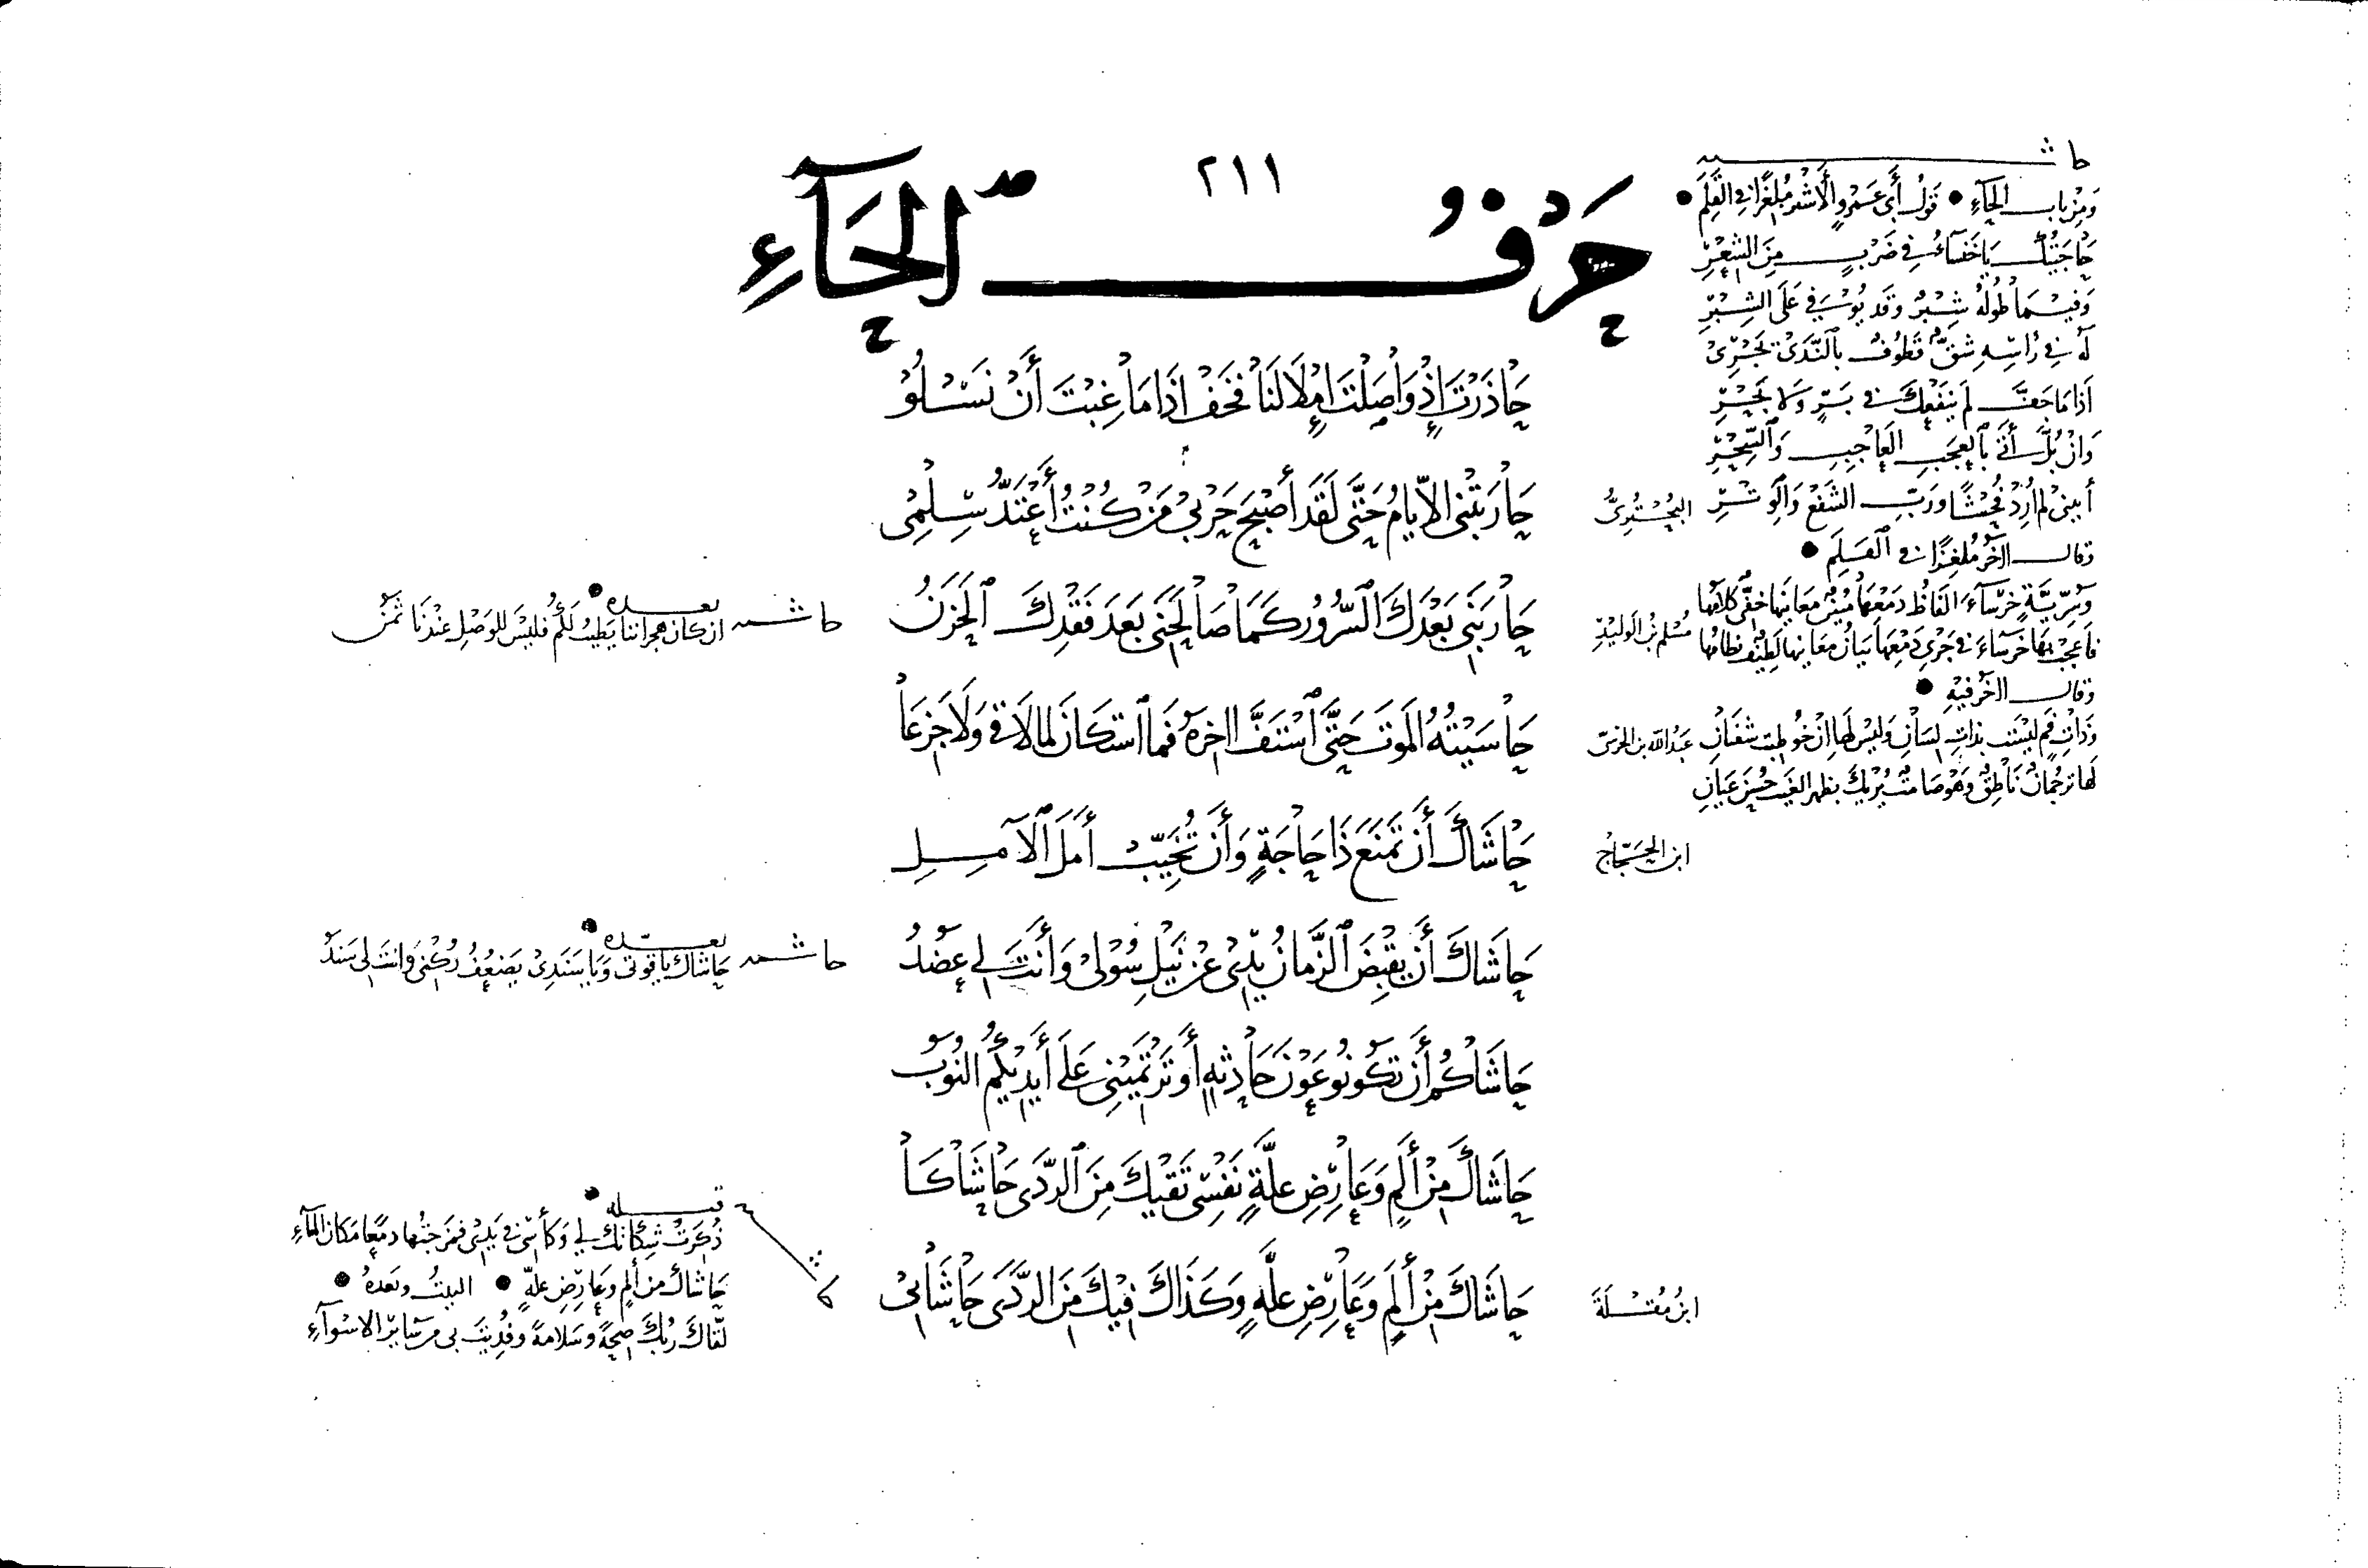 ٢١١
حَرْفُ الحَآءِ
حَاذَرْتَ إِذْ وَاصَلْتَ إِمْلَالَنَا فَخَفْ إِذَا مَا غِبْتَ أَنْ نَسْلُوْ
حَارَبَتْنِى الأَيَامُ حَتَّى لَقَدَ أَصْبَحَ حَرْبِى مَنْ كُنْتُ أَعْتَدُّ سِلْمِى
حَارَبَنِى بَعْدَكَ السُّرُورُ كَمَا صَالَحَنِى بَعَدَ فَقْدِكَ الحَزَنُ
حَاسَيْتُهُ المَوتَ حَتَّى اسْتَفَّ اٰخِرَهُ فَمَا اسْتَكَانَ لمَا لَاقَى وَلَا جَزِعَا
حَاشَاكَ أَنْ تَمَنَعَ ذَا حَاجَةٍ وَأَنْ تُخَيِّبَ أَمَلَ الآمِلِ
حَاشَاكَ أَنْ يَقْبِضَ الزَّمَانُ يَدِى عَنْ نَيْلِ سُوْلِى وَأَنْتَ لِى عَضُدُ
حَاشَاكُمُ أَنْ تَكُونُو عَوْنَ حَادِثَةٍ أَو تَرْتَمِيْنِى عَلَى أَيْدِيْكُمُ النُوَبُ
حَاشَاكَ مِنْ أَلَمٍ وَعَارِضِ عِلَّةٍ نَفْسِى تَقِيْكَ مِنَ الرَّدَى حَاشَاكَا
حَاشَاكَ مِنْ أَلَمٍ وَعَارِضِ عِلَّةٍ وَكَذَاكَ فِيْكَ مِنَ الرَّدَى حَاشَائِى
البُحْتُرِىُّ
مُسْلم بْنُ الوَليْدِ
عَبْدُ الله بن
ابن الحَجَّاجْ
ابنُ مُقْلَةَ
حاشيه
وَمِنْ باب الحَآءِ • قَوْلُ أَبى عَمْرٍو مُلغِزًا فِى القَلَمِ •
حَاجَيْتُكِ يَا خَنسَاءُ فِى ضَرْبٍ مِنَ الشِعْرِ
وَفيْمَا طُولُهُ شِبْرٌ وَقَد يُوْفِى عَلَى الشِبْرِ
لَهُ فِى رَاسِهِ شَقٌّ نَطُوفٌ بِالنَّدَى يَجْرِى
اذَا مَا جَفَّ لَم يَنفَعْكَ فى بَرٍّ وَلَا بَحْرِ
وَانْ بُلَّ أَتَى بِالعَجَبِ العَاجِبِ وَالسِّحْرِ
أَبِيْنِى لَم أُرِدْ فُحْشًا وَرَبِّ الشَفْعِ وَالوِتْرِ
وَقال اٰخَرُ مُلغِزًا فى القَلَمِ •
خَرْسَآءَ الفَاظُ دَمْعِهَا مَعَانِيْهَا خَفِىٌّ كَلَامُهَا
فَاعْجَبْ بِهَا خَرسَاءَ فى جَرْىِ دَمْعِهَا بَيَانُ مَعَانِيْهَا لَطِيْفٌ نظَامُهَا
وَقال اٰخَرُ فيْهِ •
وَذَاتِ فَمٍ لَيْسَتْ بذَاتِ لِسَانِ وَلَيْسَ لَهَا إِنْ خُوطِبَتْ شَفَتَانِ
لَهَا تَرجُمَانٌ نَاطِقٌ وَهْوَ صَامتٌ يُرِيْكَ بظهر الغَيْبِ حُسْنَ عَيَانِ
حاشيه بعده •
ان كان هجراننا يَطِيْبُ لَكُم فَليْسَ للوَصْلِ عِنْدَنَا ثَمَنُ
حاشيه بعده •
حَاشَاكَ يا قُوَّتى وَيَا سَنَدِى يَضْعُفُ رُكْنِى وَانتَ لِى سَنَدُ
قبله •
ذُكِرَتْ شِكَاتُكَ لِى وَكَأْسِى فى يَدِى فَمَزَجْتُهَا دَمْعًا مَكَانَ المآءِ
حَاشَاكَ من أَلَمٍ وعَارِضِ علَّةٍ • البيتُ وَبَعدهُ •
لَقَّاكَ رَبُّكَ صِحَّةً وسَلامَةً وفُدِيْتَ بى مِن سَايِرِ الاسْوآءِ